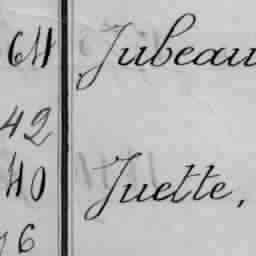 64 Jubeau
42
40 Juette,
6